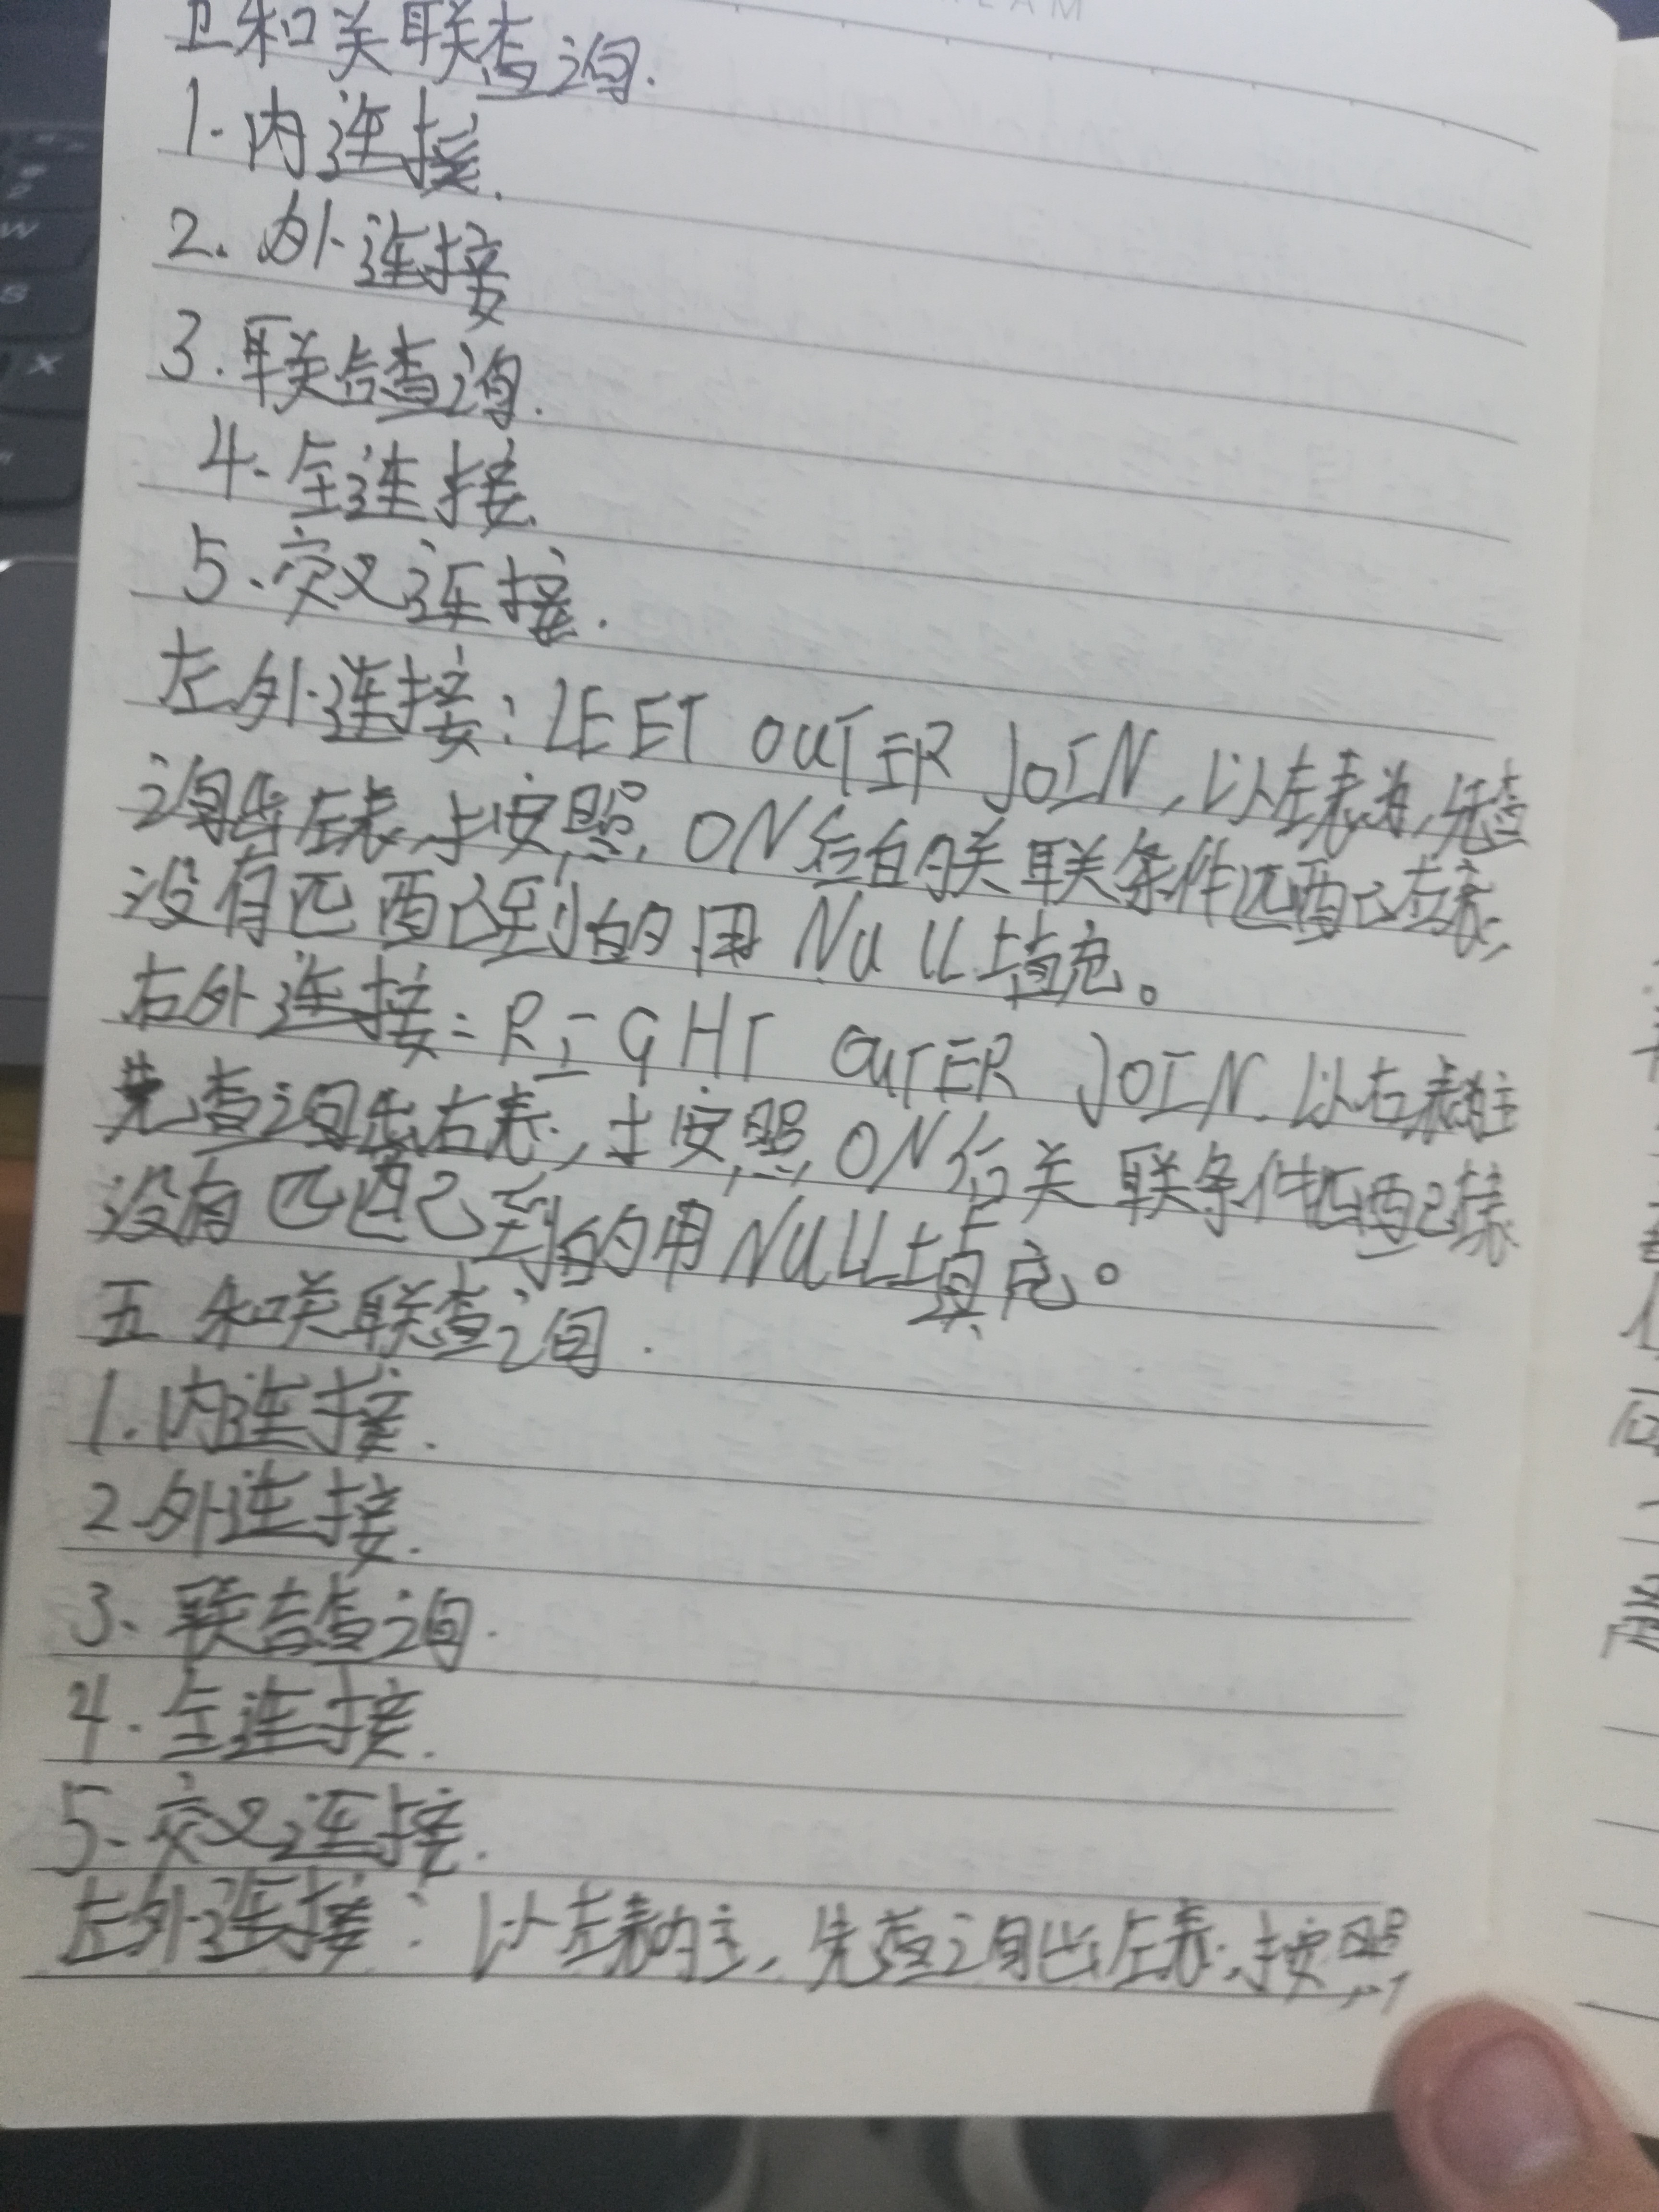 五种关联查询.
1.内连接.
2.外连接
3.联合查询.
4.全连接.
5.交叉连接.
左外连接:LEET OUTER JOIN,以左表为,先查
询出左表,按照,ON后的关联条件匹配右表,
没有匹配到的用NULL填充。
右外连接:RIGHT OUTER JOIN.以右表为主
先查询出右表,按照,ON后关联条件匹配左表
没有匹配到的用NULL填充。
五种关联查询.
1.内连接.
2.外连接.
3.联合查询.
4.全连接.
5.交叉连接.
左外连接:以左表为主,先查询出左表,按照